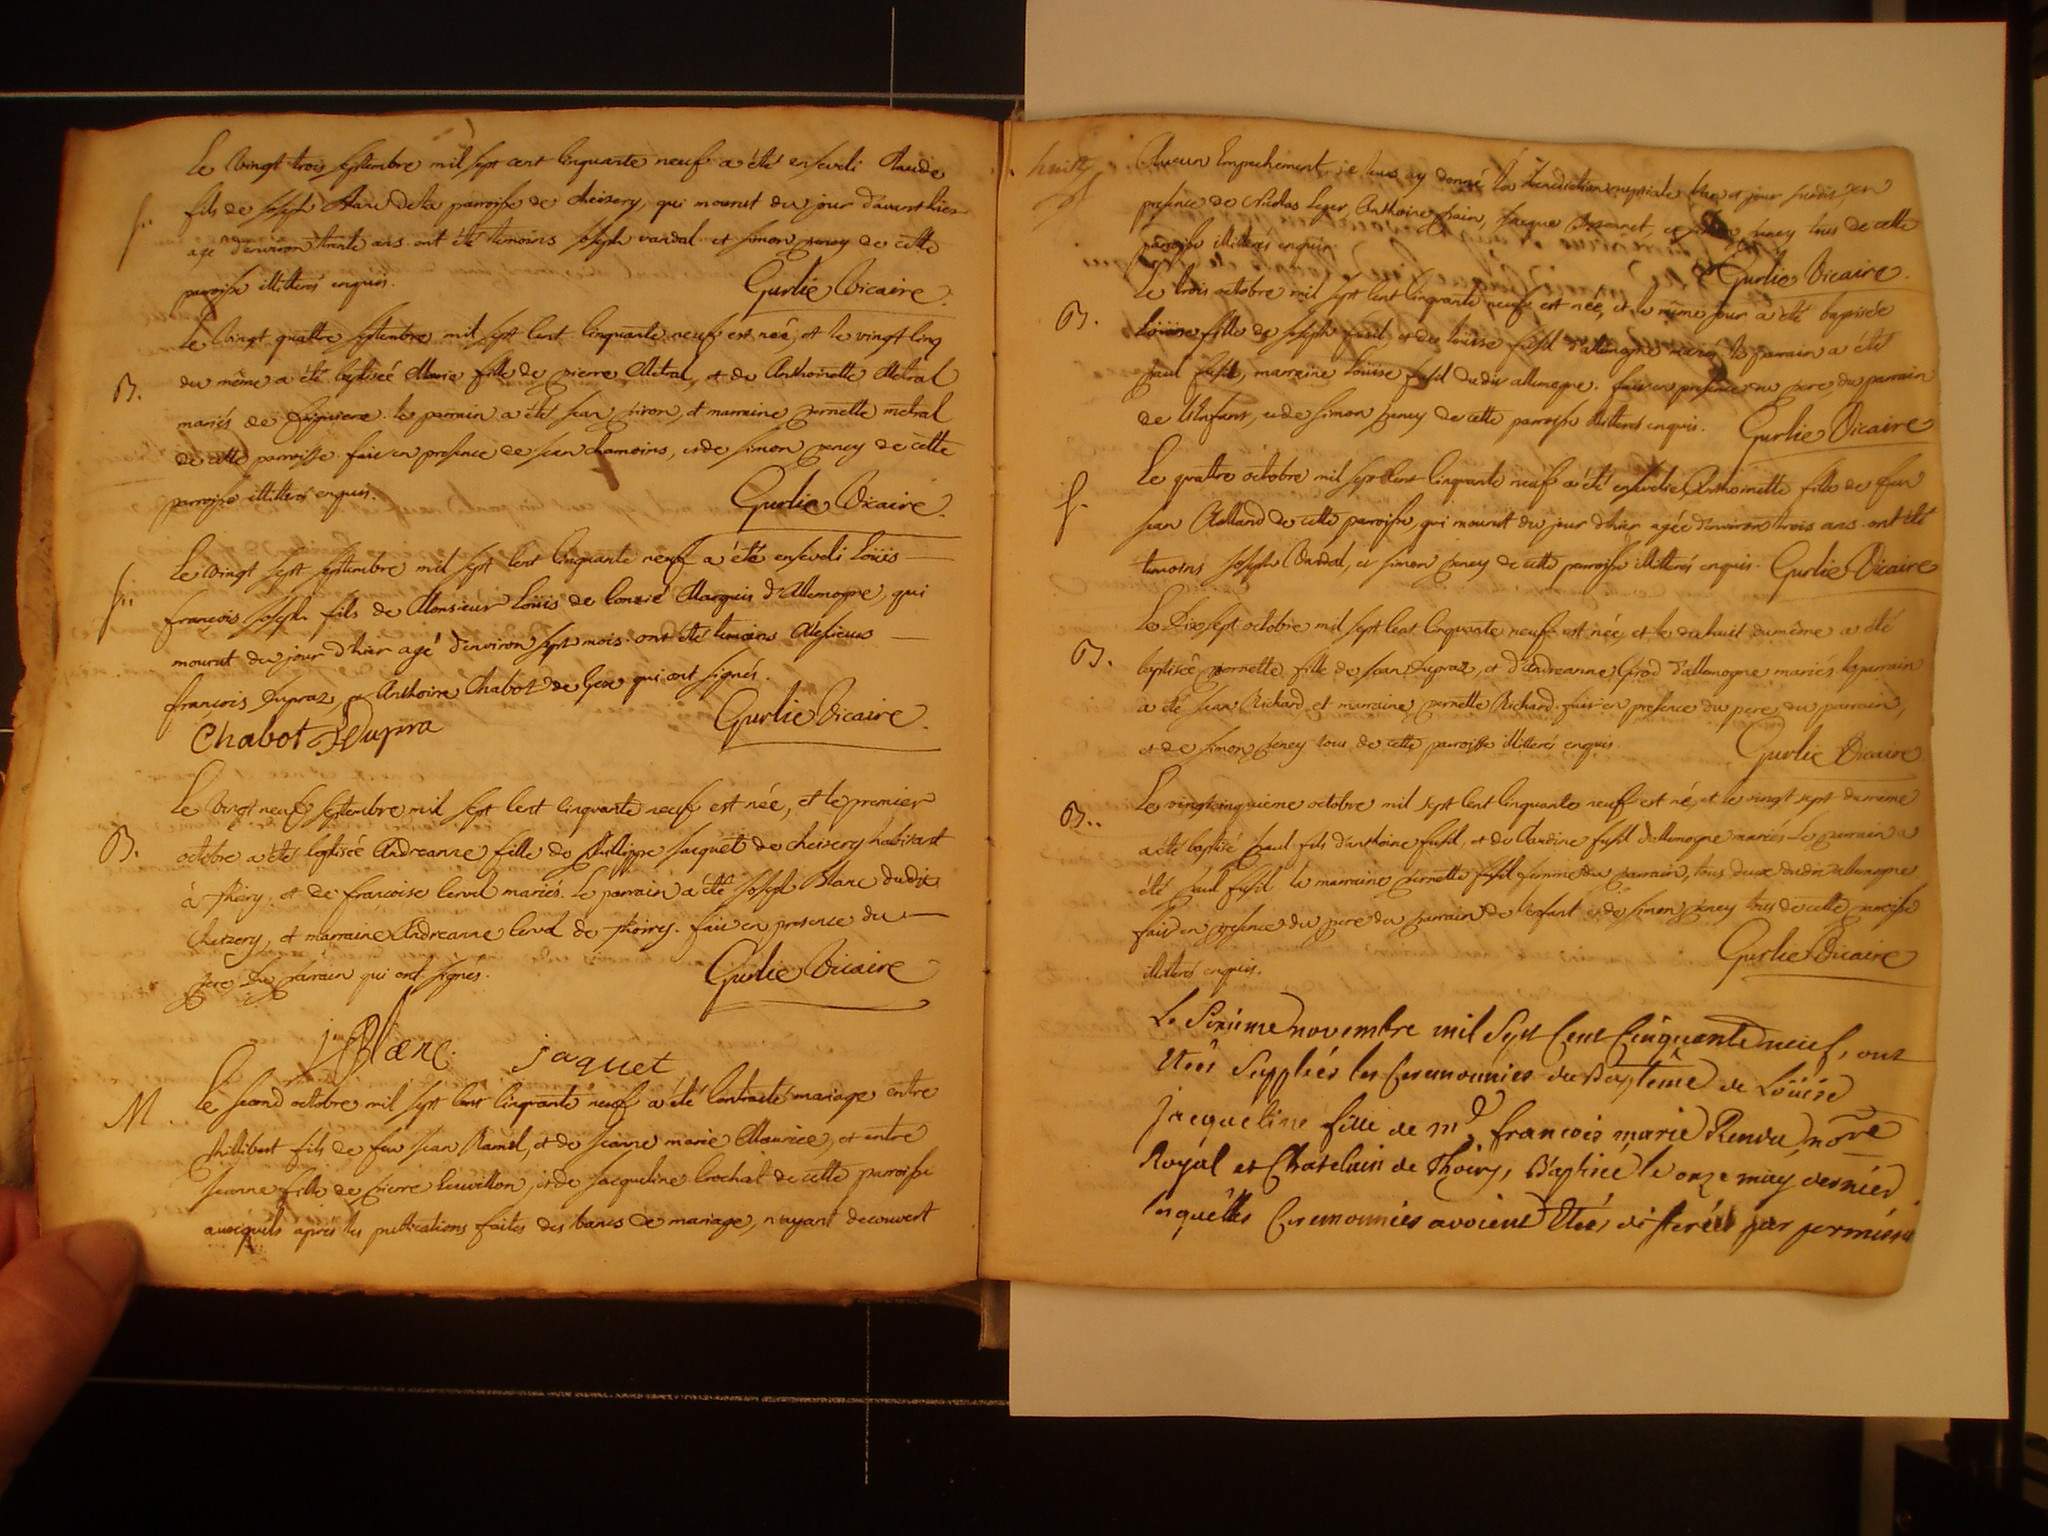 Le vingt trois septembre mil sept cent cinquante neuf a été enseveli Claude
S.
fils de Joseph Blanc de la parroisse de cheisery, qui mourut du jour d'avant hier
agé d'environ trente ans ont été temoins Joseph vandal et simon peney de cette
parroisse illitterés enquis. Gurlie Vicaire
Le vingt quattre septembre mil sept cent cinquante neuf est née, et le vingt cinq
B.
du même a été baptiseé Marie fille de pierre Métral, et de Anthoinette Métral
mariés de le parrain a été jean piron, et marraine pernette metral
de cette parroisse. fait en presence de jean chamoins, et de simon peney de cette
parroisse illitterés enquis. Gurlie Vicaire
Le vingt sept septembre mil sept cent cinquante neuf a été enseveli Loüis
S.
françois Joseph fils de Monsieur Loüis de Conzié Marquis d'Allemogne, qui
mourut du jour d'hier agé d'environ sept mois. ont été temoins
françois Dupraz, et Anthoine Chabot de Gex qui ont signés.
Chabot Dupra Gurlie Vicaire
Le vingt neuf septembre mil sept cent cinquante neuf est née, et le premier
B.
octobre a été baptisée Andreanne fille de Phillippe Jacquet de cheisery habitant
à Thoiry, et de francoise mariés. Le parrain a été Joseph Blanc dudit
Cheizery, et marraine Andreanne de Thoiry. fait en presence du
pere Du parrain qui ont signés. Gurlie Vicaire
j Blanc. jaquet
M.
Le second octobre mil sept cent cinquante neuf a été contracté mariage entre
Phillibert fils de feu jean Ramel, et de jeanne marie Maurice, et entre
jeanne fille de pierre et de jacqueline Crochat de cette parroisse
auxquels apres les publications faites des bancs de mariage, n'ayant decouvert
huitt
Aucun Empechement, je leur ay donné la Benediction nuptiale l'an et jour susdit, en
presence de Nicolas Leger, Anthoine jacque et simon peney tous de cette
parroisse illitterés enquis. Gurlie Vicaire.
Le trois octobre mil sept cent cinquante neuf est née, et le même jour a été baptisée
B.
Loüise fille de joseph fusil, et de loüise fusil d'allemogne mariés le parrain a été
paul fusil, marraine Loüise fusil du dit allemogne. fait en presence du pere, du parrain
de l'Enfant, et de simon peney de cette parroisse illitterés enquis. Gurlie Vicaire
Le quattre octobre mil sept cent cinquante neuf a été ensevelie Anthoinette fille de feu
S.
jean Rolland de cette parroisse, qui mourut du jour d'hier agée d'environ trois ans. ont été
temoins Joseph Vandal, et simon peney de cette parroisse illitterés enquis. Gurlie Vicaire
Le Dix sept octobre mil sept cent cinquante neuf est née, et le dix huit du même a été
B.
baptisée pernette fille de jean Dupraz, et d'Andreanne Grod d'allemogne mariés. le parrain
a été jean Richard et marraine pernette Richard. fait en presence du pere du parrain,
et de simon peney tous de cette parroisse illitterés enquis. Gurlie Vicaire
Le vingt cinquieme octobre mil sept cent cinquante neuf est né, et le vingt sept du meme
B.
a été baptisé paul fils d'anthoine fusil, et de Claudine fusil d'allemogne mariés. Le parrain a
été paul fusil la marraine pernette fusil femme du parrain, tous deux dudit allemogne
fait en presence du pere du parrain de l'enfant et de simon peney tous de cette parroisse
illitterés enquis. Gurlie Vicaire
Le Sixieme novembre mil Sept Cent Cinquante neuf, ont
Etées Suppliées les Ceremonnies du Baptême de Loüise
jacqueline fille de md. francois marie Rendu, nore
Royal et Chatelain de Thoiry, Baptisée le onze may dernier
lesquelles Ceremonnies avoient Etées differées par permission